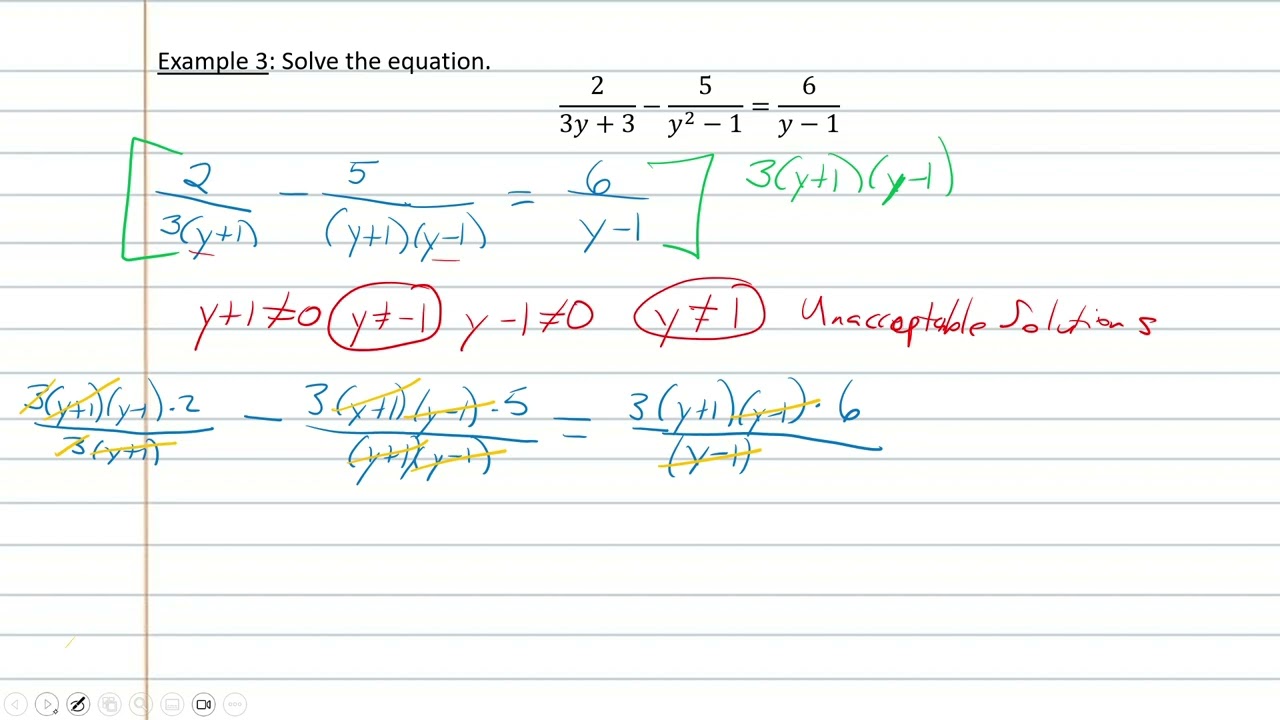 Example 3: Solve the equation.
2/(3y + 3) − 5/(y² − 1) = 6/(y − 1)
[2/(3(y+1)) − 5/((y+1)(y−1)) = 6/(y−1)] 3(y+1)(y−1)
y+1≠0 y≠−1 y−1≠0 y≠1 Unacceptable Solutions
3(y+1)(y−1)·2/(3(y+1)) − 3(y+1)(y−1)·5/((y+1)(y−1)) = 3(y+1)(y−1)·6/(y−1)